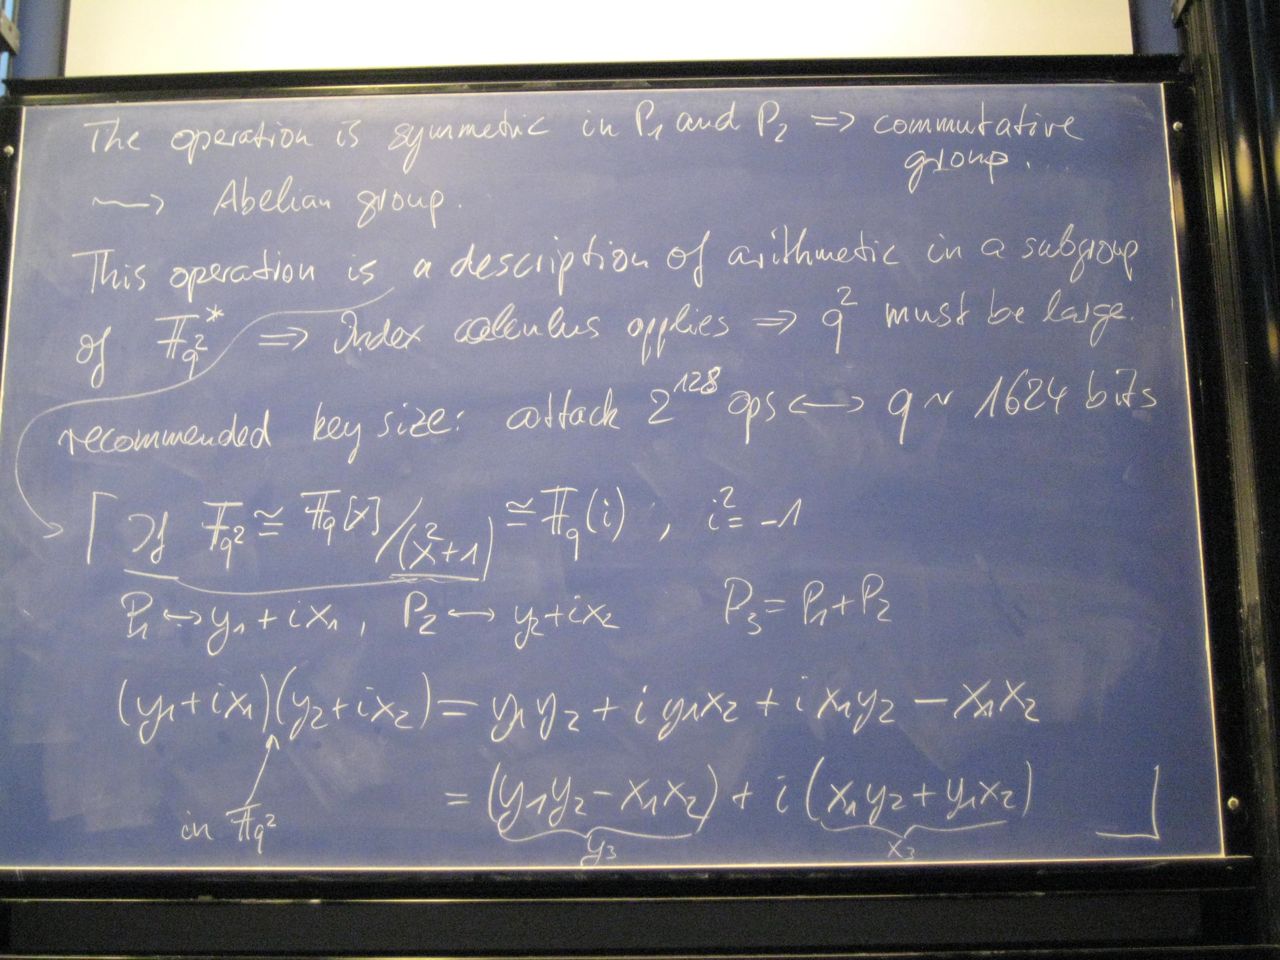 The operation is symmetric in P₁ and P₂ ⇒ commutative
group.
⟿ Abelian group.
This operation is a description of arithmetic in a subgroup
of 𝔽_q²* ⇒ Index calculus applies ⇒ q² must be large.
recommended key size: attack 2¹²⁸ ops ⟷ q ~ 1624 bits
⌈ If 𝔽_q² ≅ 𝔽_q[x]/(x²+1) ≅ 𝔽_q(i), i² = -1
P₁ ↔ y₁+ix₁, P₂ ↔ y₂+ix₂ P₃ = P₁+P₂
(y₁+ix₁)(y₂+ix₂) = y₁y₂ + i y₁x₂ + i x₁y₂ − x₁x₂
= (y₁y₂ − x₁x₂) + i (x₁y₂ + y₁x₂) ⌋
in 𝔽_q²
y₃ x₃